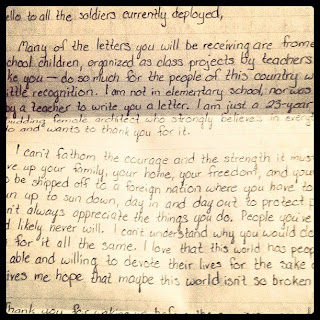 ello to all the soldiers currently deployed,
Many of the letters you will be receiving are from e
chool children, organized as class projects by teachers
ke you — do so much for the people of this country w
ittle recognition. I am not in elementary school, nor was
by a teacher to write you a letter. I am just a 23-year
budding female architect who strongly believes in everyt
do and wants to thank you for it.
I can't fathom the courage and the strength it must
ve up your family, your home, your freedom, and your
o be shipped off to a foreign nation where you have to
un up to sun down, day in and day out to protect p
n't always appreciate the things you do. People you've
d likely never will. I can't understand why you would do
for it all the same. I love that this world has peop
able and willing to devote their lives for the sake o
ives me hope that maybe this world isn't so broken
Thank you for